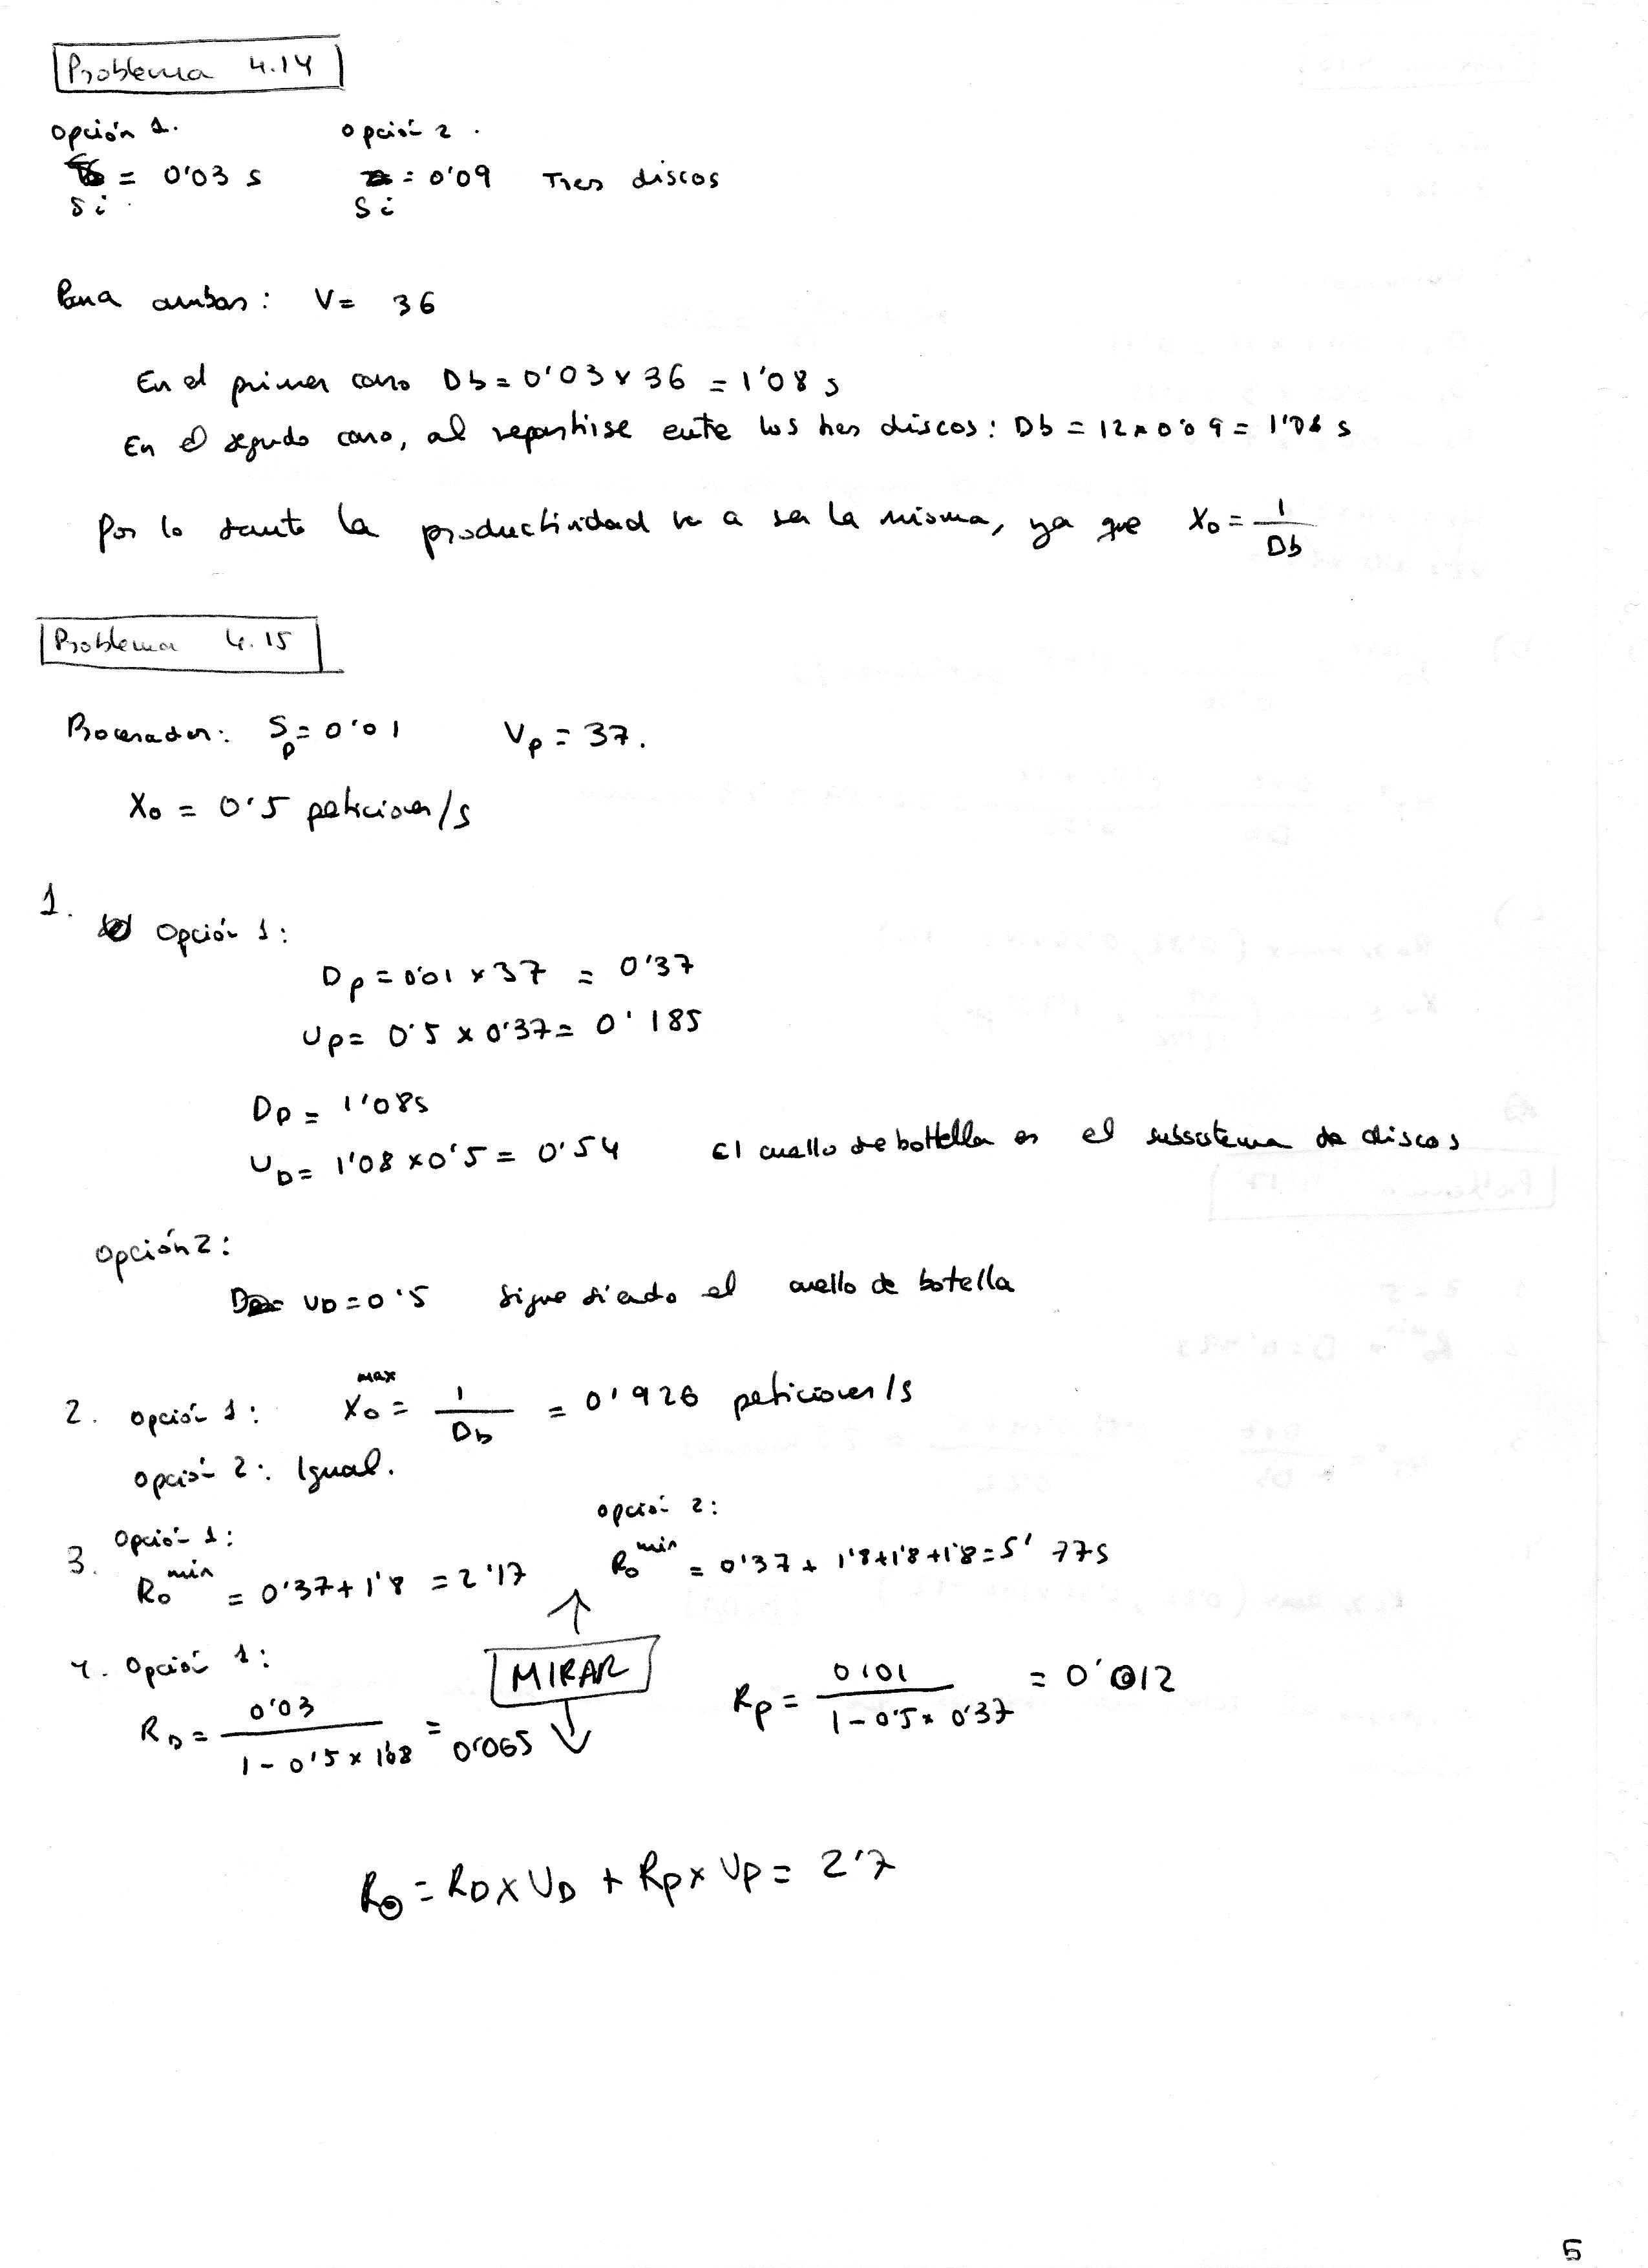 Problema 4.14
Opción 1. Opción 2.
Si = 0'03 s Si = 0'09 Tres discos
Para ambas: V= 36
En el primer caso Db = 0'03 x 36 = 1'08 s
En el segundo caso, al repartirse entre los tres discos: Db = 12 x 0'09 = 1'08 s
Por lo tanto la productividad va a ser la misma, ya que Xo = 1/Db
Problema 4.15
Procesador: Sp = 0'01 Vp = 37.
Xo = 0'5 peticiones/s
1. Opción 1:
Dp = 0'01 x 37 = 0'37
Up = 0'5 x 0'37 = 0'185
DD = 1'08s
UD = 1'08 x 0'5 = 0'54 El cuello de bottella es el subsistema de discos
Opción 2:
UD = 0'5 Sigue siendo el cuello de botella
2. Opción 1: Xo max = 1/Db = 0'926 peticiones/s
Opción 2: Igual.
3. Opción 1: Opción 2:
Ro min = 0'37 + 1'8 = 2'17 Ro min = 0'37 + 1'8 + 1'8 + 1'8 = 5'77s
4. Opción 1: MIRAR
RD = 0'03 / 1 - 0'5 x 1'08 = 0'065 Rp = 0'01 / 1 - 0'5 x 0'37 = 0'012
Ro = RD x VD + Rp x Vp = 2'7
5